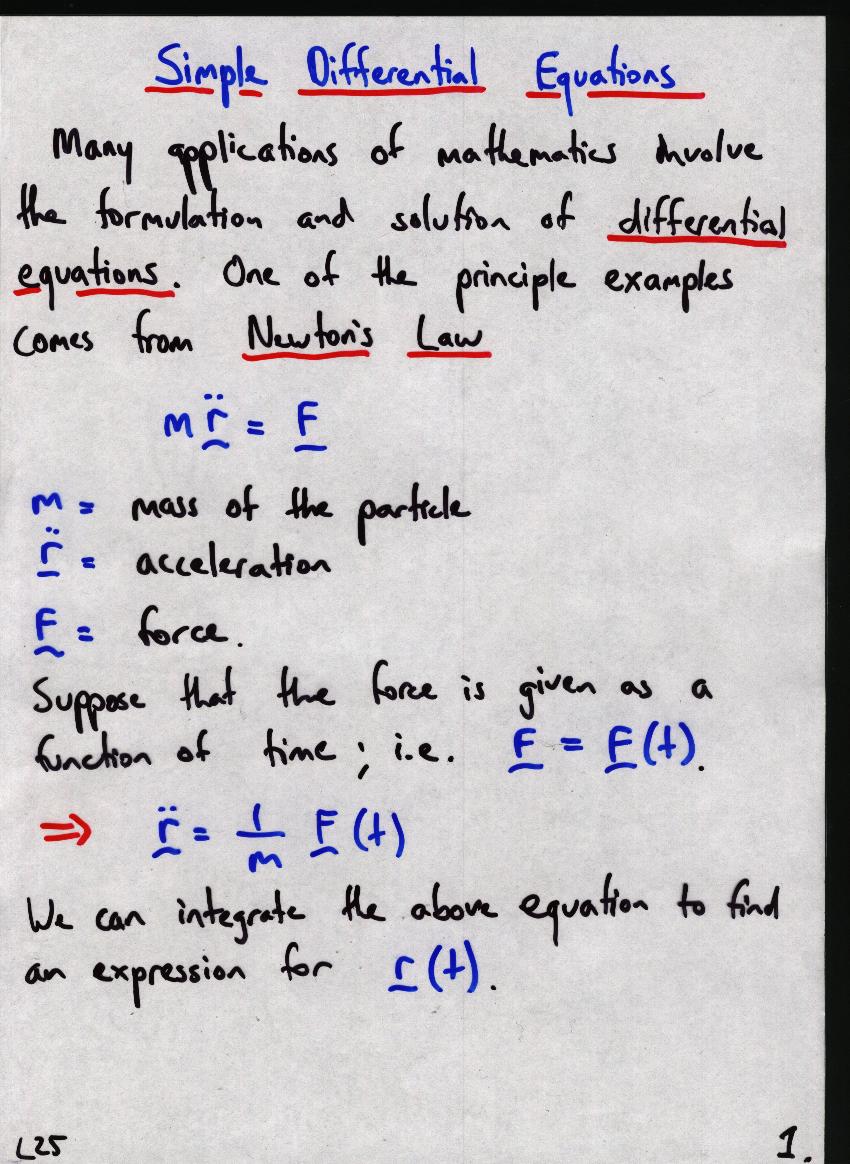 Simple Differential Equations
Many applications of mathematics involve
the formulation and solution of differential
equations. One of the principle examples
comes from Newton's Law
m r̈ = F
m = mass of the particle
r̈ = acceleration
F = force.
Suppose that the force is given as a
function of time; i.e. F = F(t).
⇒ r̈ = 1/m F(t)
We can integrate the above equation to find
an expression for r(t).
L25 1.